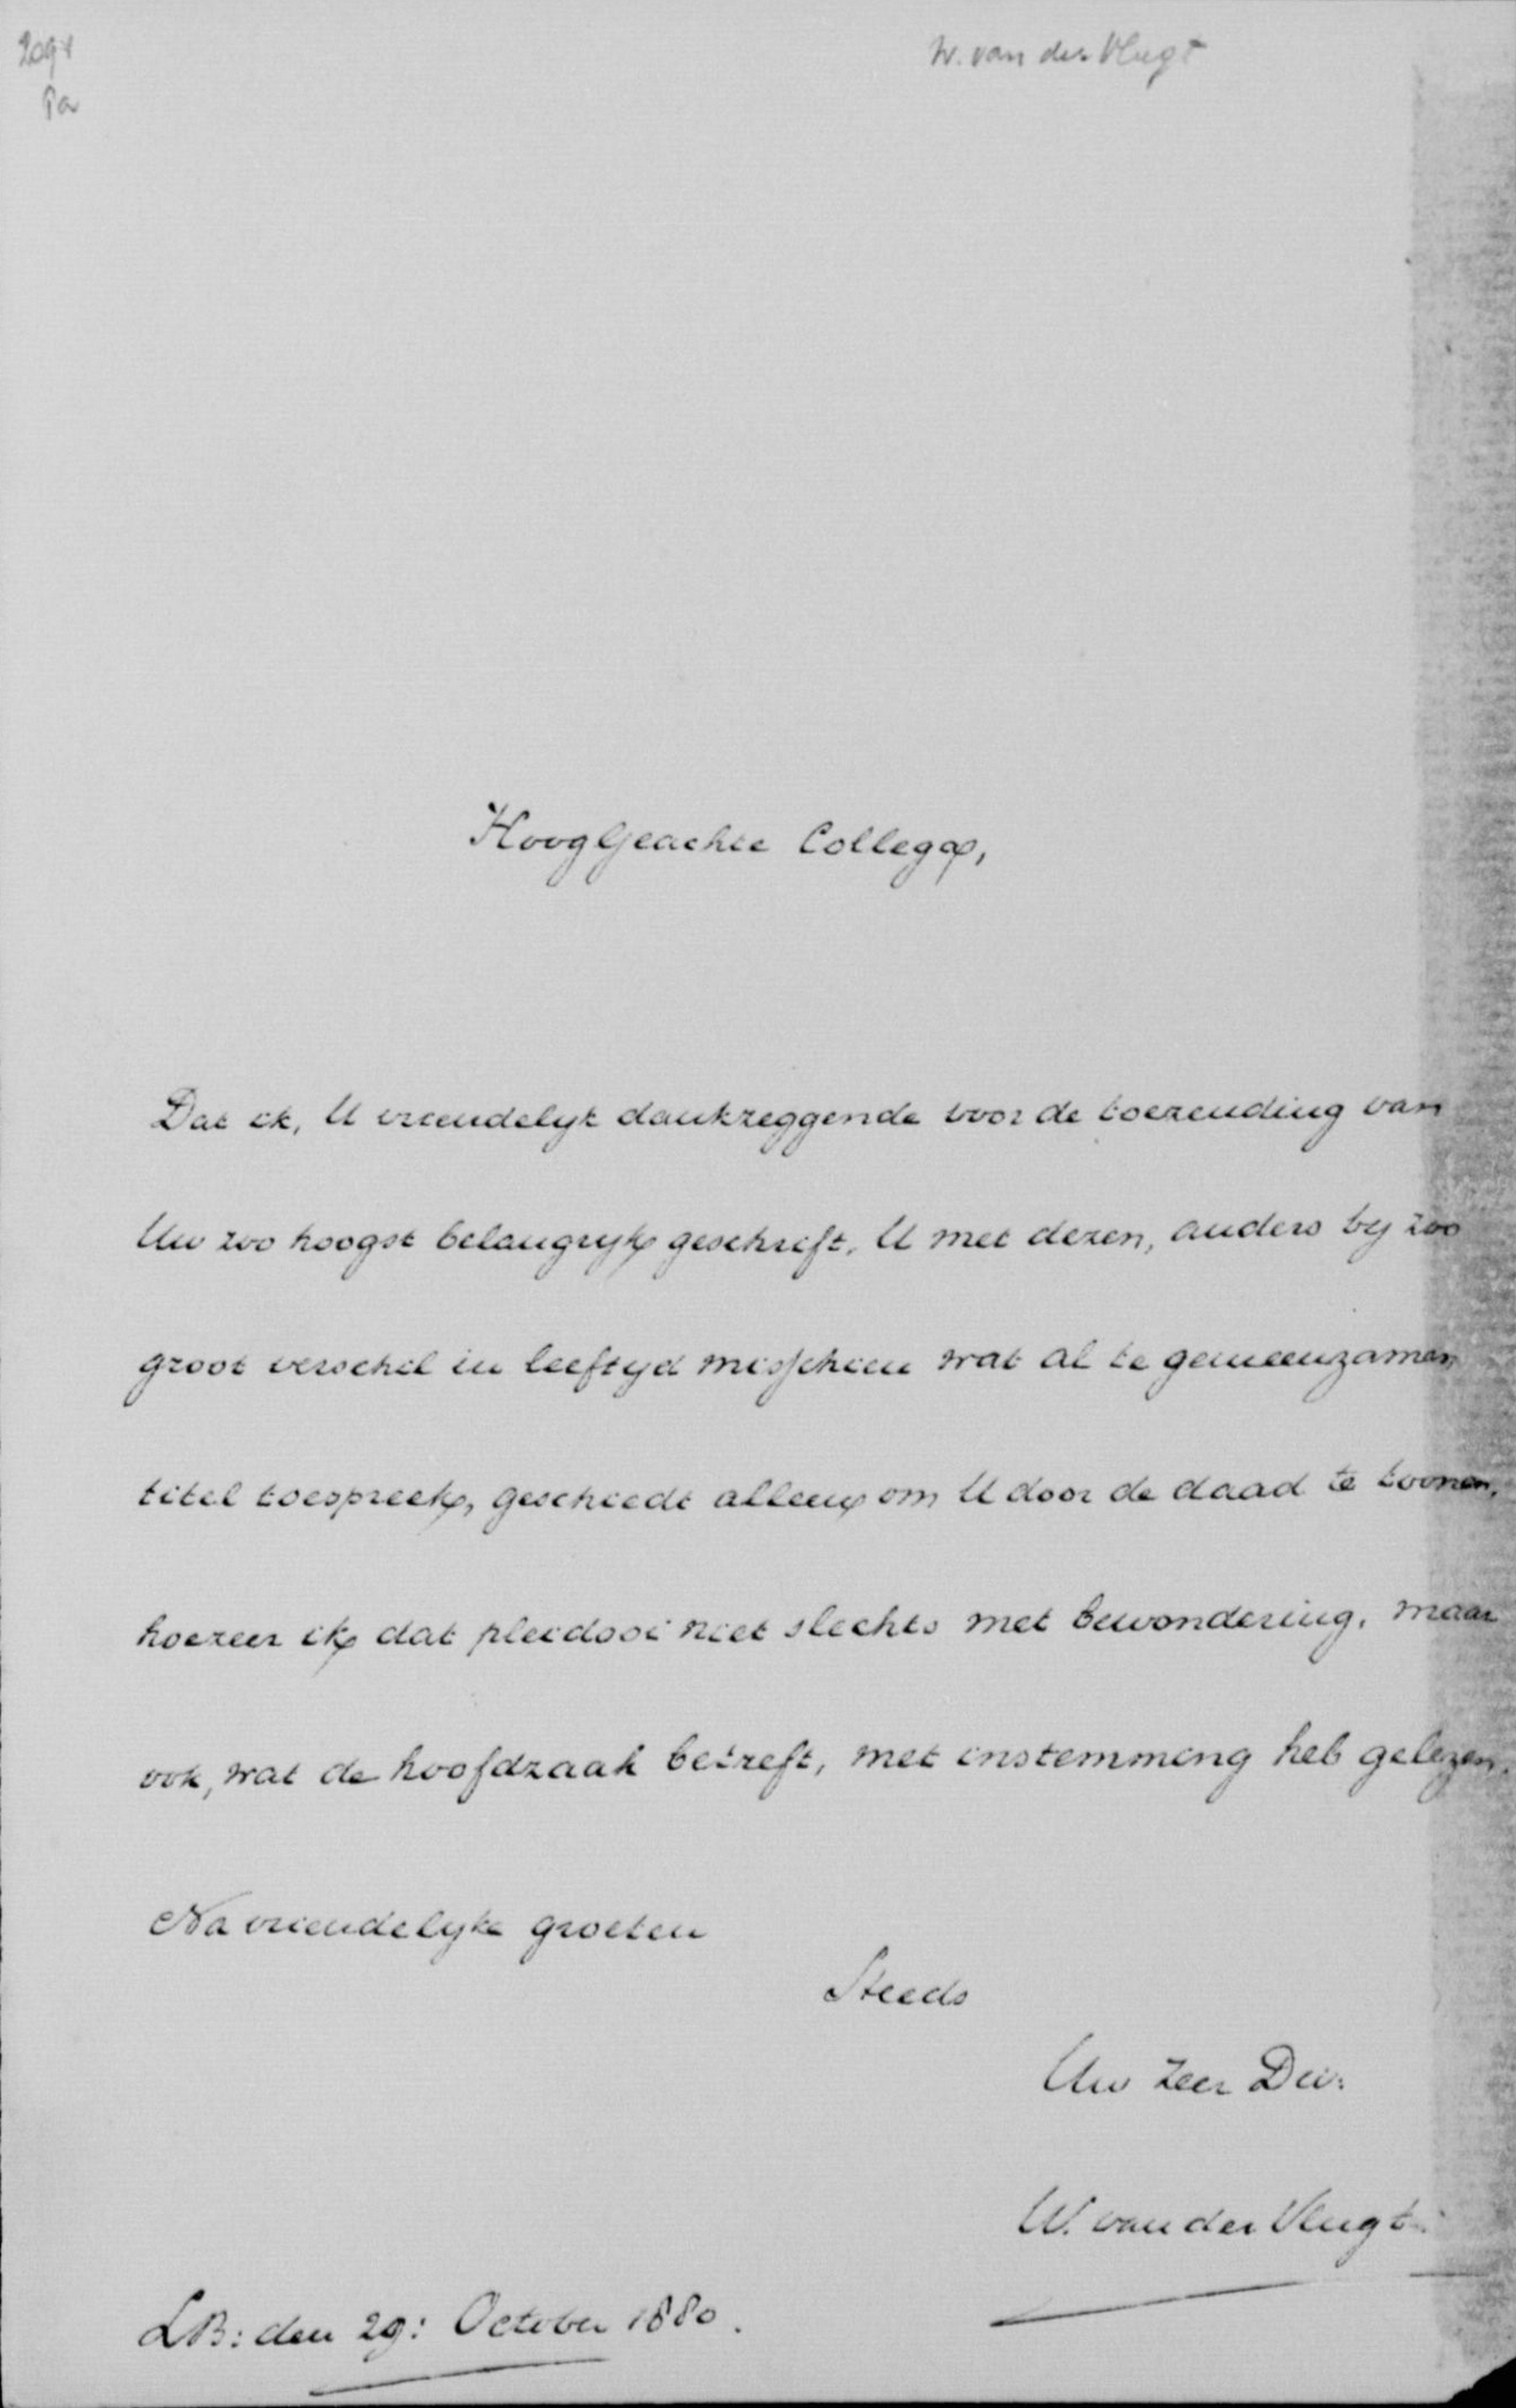 W. van der Vlugt
HoogGeachte Collega,
Dat ik, U vriendelijk dankzeggende voor de toezending van
Uw zoo hoogst belangrijk geschrift, U met dezen, anders bij zoo
groot verschil in leeftijd misschien wat al te gemeenzamen
titel toespreek, geschiedt alleen om U door de daad te toonen,
hoezeer ik dat pleidooi niet slechts met bewondering, maar
ook, wat de hoofdzaak betreft, met instemming heb gelezen.
Na vriendelijke groeten
Steeds
Uw Zeer Dw:
W. van der Vlugt
LB: den 29: October 1880.